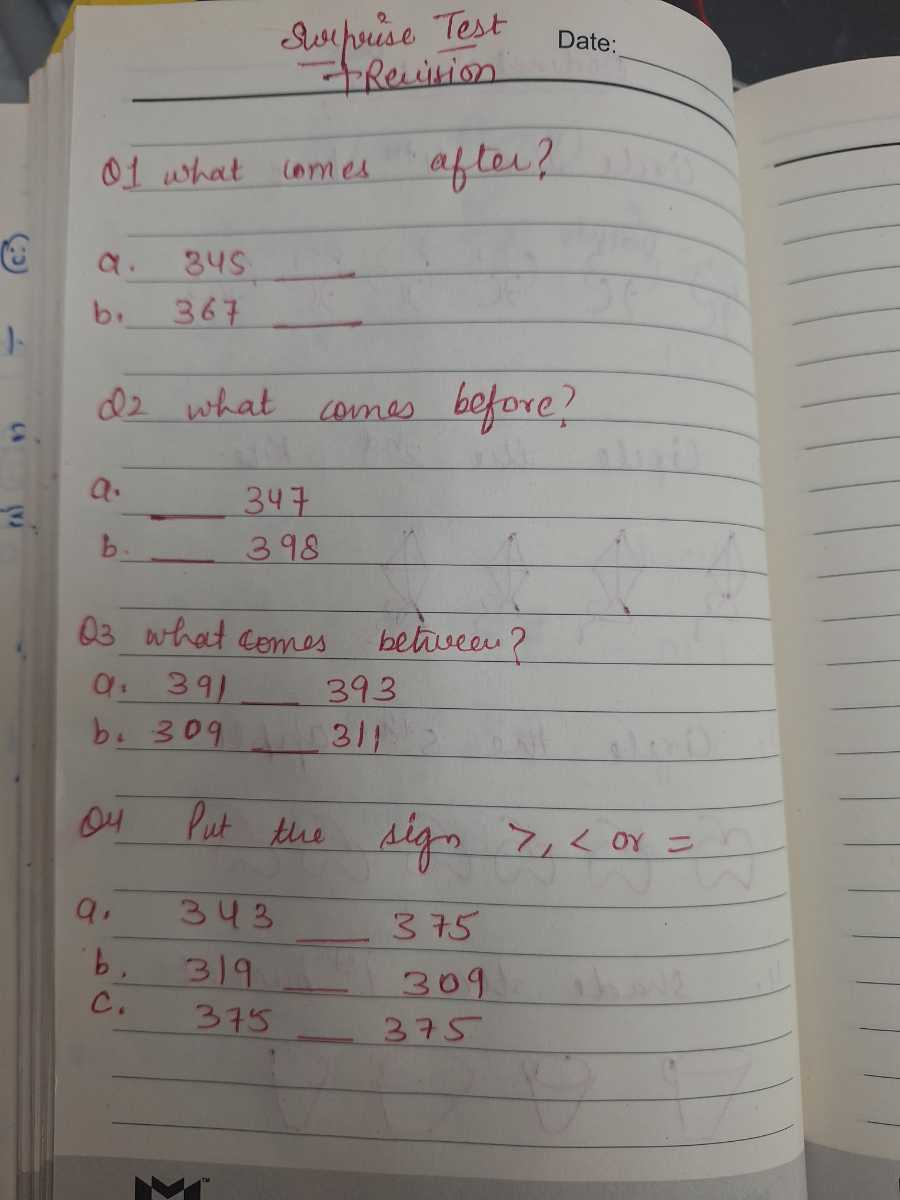 Surprise Test
Date:
+ Revision
Q1 what comes after?
a. 345 ___
b. 367 ___
Q2 what comes before?
a. ___ 347
b. ___ 398
Q3 what comes between?
a. 391 ___ 393
b. 309 ___ 311
Q4 Put the sign >, < or =
a. 343 ___ 375
b. 319 ___ 309
c. 375 ___ 375